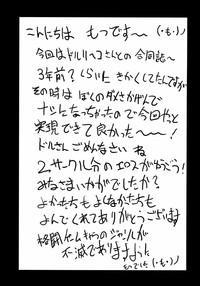 こんにちは もつです〜 (・も・)ノ
今回はドルリヘコさんとの合同誌〜
3年前?くらいに きかくしてたんですが
その時は ぼくのダメさかげんで
ナシになっちゃったので今回やっと
実現できて良かった〜〜〜!
ドルさんごめんなさい ね
2サークル分のエロスがゆうごう!
みなさまいかがでしたか?
よかたちも よくなかたちも
よんでくれてありがとうございます
格闘ゲームキャラのジャンルが
不滅でありますように
もつでした (・も・)ノ